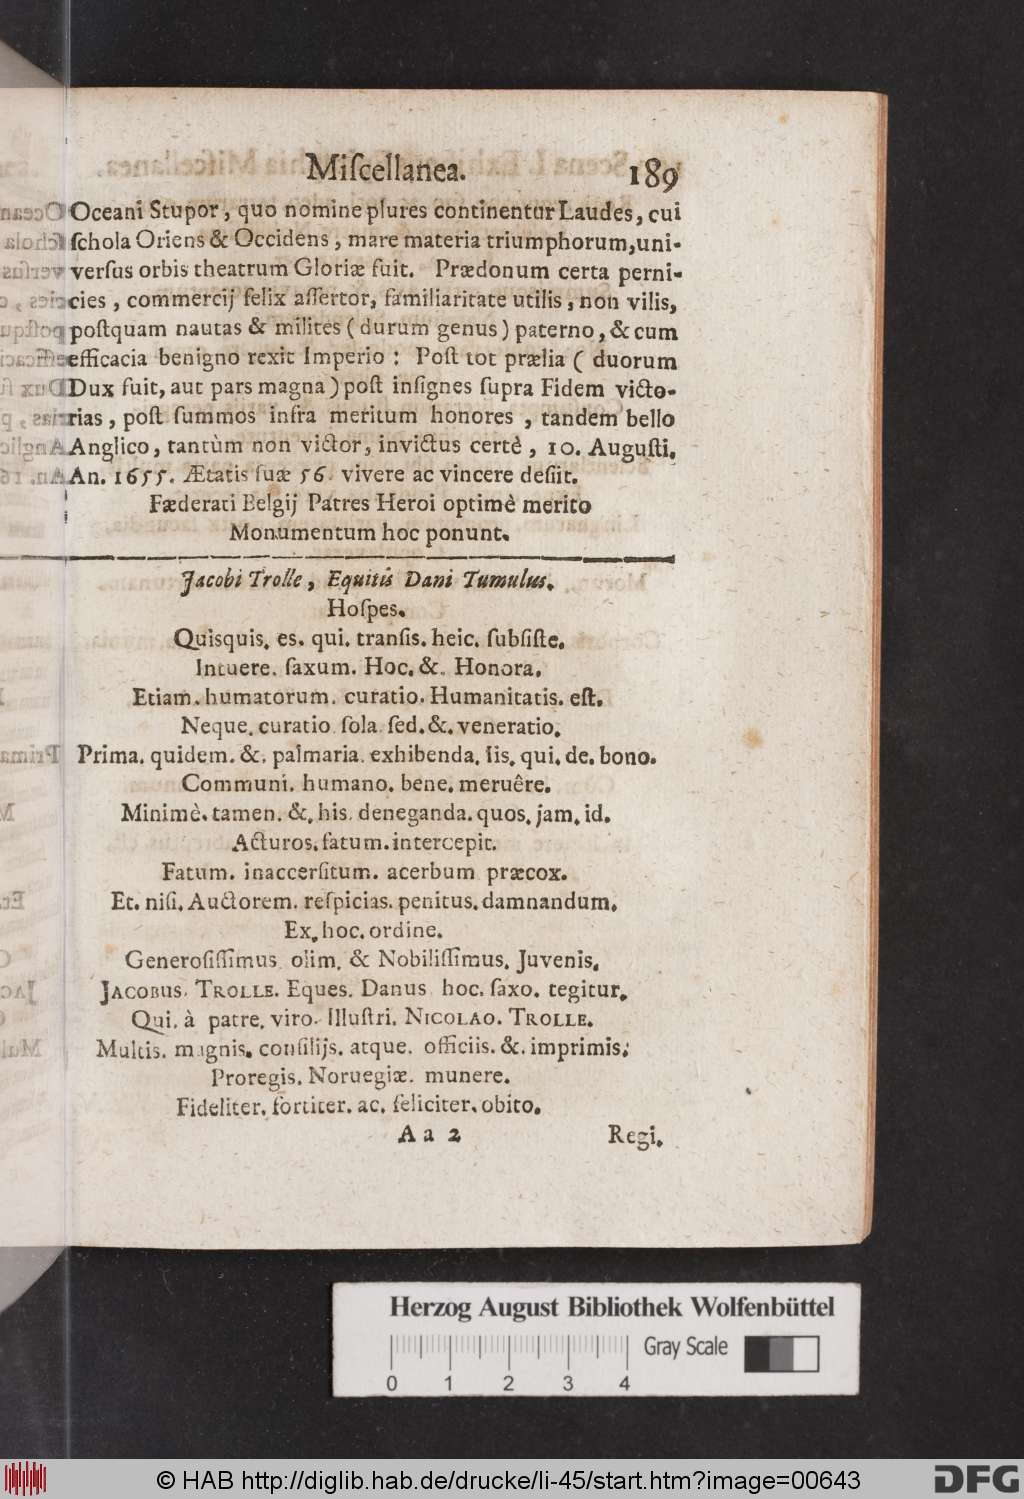 Miſcellanea. 189
Oceani Stupor, quo nomine plures continentur Laudes, cui
ſchola Oriens & Occidens, mare materia triumphorum, uni-
verſus orbis theatrum Gloriæ fuit. Prædonum certa perni-
cies, commercij felix aſſertor, familiaritate utilis, non vilis,
poſtquam nautas & milites (durum genus) paterno, & cum
efficacia benigno rexit Imperio: Poſt tot prælia (duorum
Dux fuit, aut pars magna) poſt inſignes ſupra Fidem victo-
rias, poſt ſummos infra meritum honores, tandem bello
Anglico, tantùm non victor, invictus certè, 10. Auguſti.
An. 1655. Ætatis ſuæ 56. vivere ac vincere deſiit.
Fæderati Belgij Patres Heroi optimè merito
Monumentum hoc ponunt.
Jacobi Trolle, Equitis Dani Tumulus.
Hoſpes.
Quisquis. es. qui. tranſis. heic. ſubſiſte.
Intuere. ſaxum. Hoc. &. Honora.
Etiam. humatorum. curatio. Humanitatis. eſt.
Neque. curatio. ſola. ſed. &. veneratio.
Prima. quidem. &. palmaria. exhibenda. Iis. qui. de. bono.
Communi. humano. bene. meruêre.
Minimè. tamen. &. his. deneganda. quos. jam. id.
Acturos. fatum. intercepit.
Fatum. inaccerſitum. acerbum præcox.
Et. niſi. Auctorem. reſpicias. penitus. damnandum.
Ex. hoc. ordine.
Generoſiſſimus. olim. & Nobiliſſimus. Juvenis.
JACOBUS. TROLLE. Eques. Danus. hoc. ſaxo. tegitur.
Qui. à patre. viro. Illuſtri. NICOLAO. TROLLE.
Multis. magnis. conſilijs. atque. officiis. &. imprimis.
Proregis. Noruegiæ. munere.
Fideliter. fortiter. ac. feliciter. obito.
Aa 2 Regi.
Herzog August Bibliothek Wolfenbüttel
Gray Scale
0 1 2 3 4
© HAB http://diglib.hab.de/drucke/li-45/start.htm?image=00643
DFG